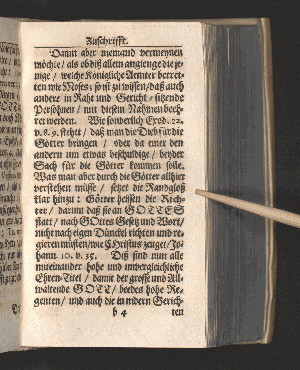 Zuschrifft.
Damit aber niemand vermeynen
möchte / als ob diß allein angienge die je-
nige / welche Königliche Aemter betret-
ten wie Moses; so ist zu wissen / daß auch
andere in Raht und Gericht-sitzende
Persohnen / mit diesem Nahmen beeh-
ret werden. Wie sonderlich Exod. 22.
v. 8. 9. stehet / daß man die Dieb für die
Götter bringen / oder da einer den
andern um etwas beschuldige / beyder
Sach für die Götter kommen solle.
Was man aber durch die Götter allhier
verstehen müsse / setzet die Randgloß
klar hinzu: Götter heissen die Rich-
ter / darum daß sie an GOTTES
statt / nach GOttes Gesetz und Wort /
nicht nach eigen Dünckel richten und re-
gieren müssen / wie CHristus zeuget / Jo-
hann. 10. v. 35. Diß sind nun alle
miteinander hohe und unvergleichliche
Ehren-Titel / damit der grosse und All-
waltende GOTT / beedes hohe Re-
genten / und auch die in andern Gerich-
b 4 ten